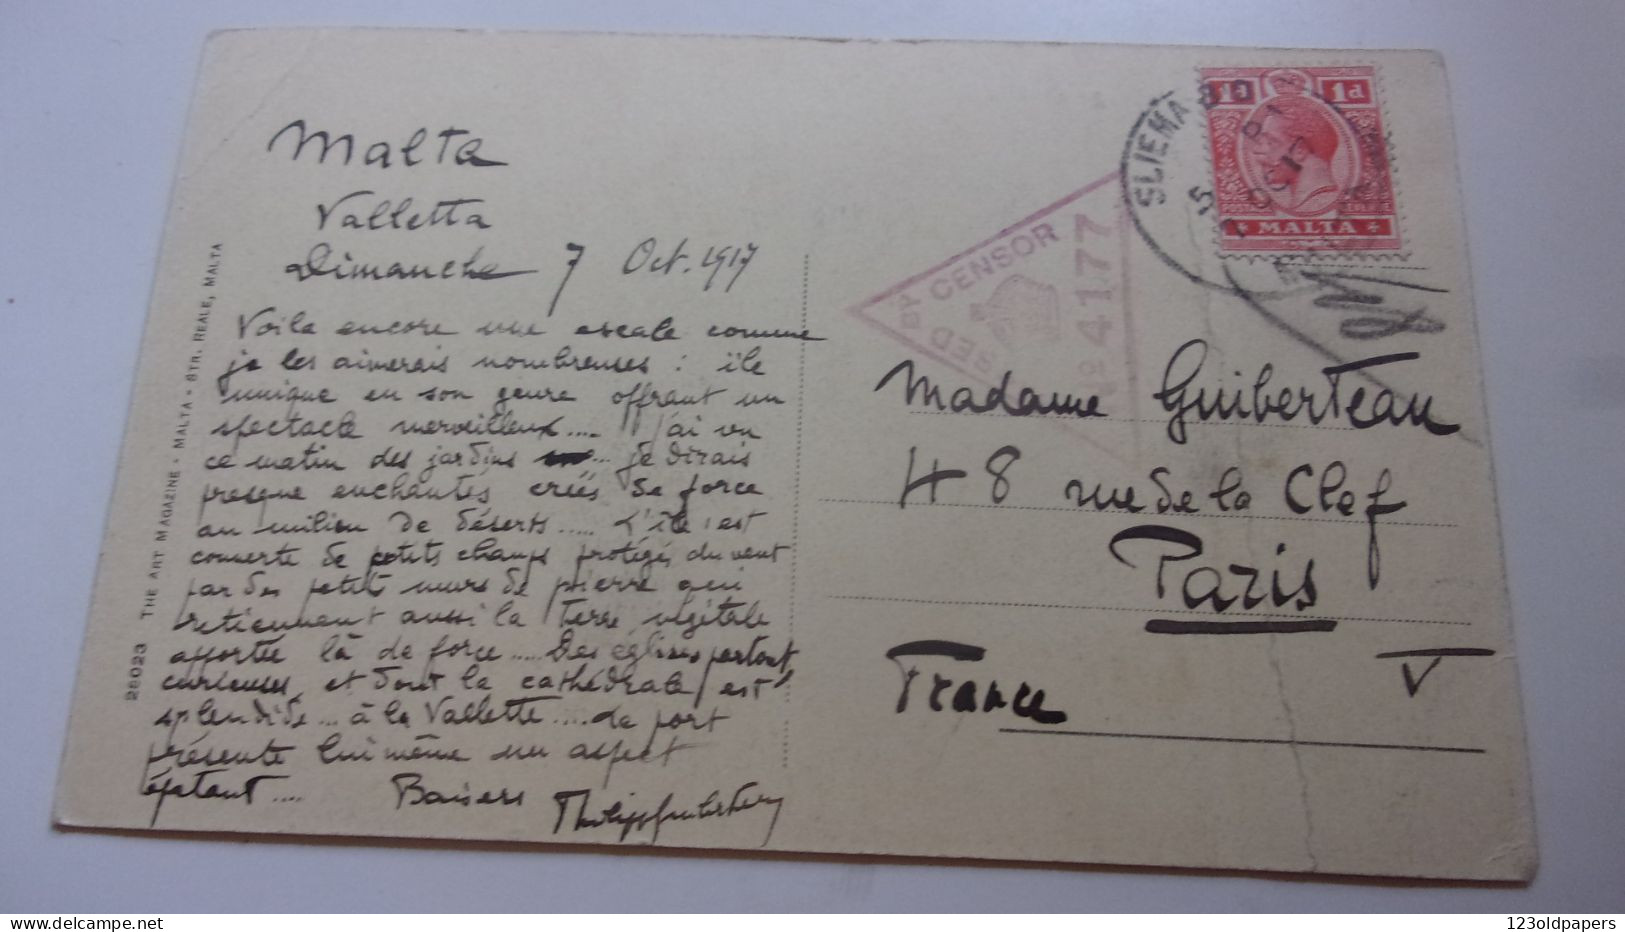 Malta
Valletta
Dimanche 7 Oct. 1917
Voila encore une escale comme
je les aimerais nombreuses : île
unique en son genre offrant un
spectacle merveilleux.... j'ai vu
ce matin des jardins ... je dirais
presque enchantés créés de force
au milieu de déserts..... L'île est
couverte de petits champs protégés du vent
par des petits murs de pierre qui
retiennent aussi la terre végétale
apportée là de force..... Des églises partout,
curieuses, et dont la cathédrale est
splendide... à la Vallette.... de port
présente lui même un aspect
épatant.... Baisers
28023 THE ART MAGAZINE - MALTA - STR. REALE, MALTA
SLIEMA B.O
5
OC 17
1d 1d
MALTA
RED BY CENSOR
No 4177
Madame Guiberteau
48 rue de la Clef
Paris
France
123oldpapers